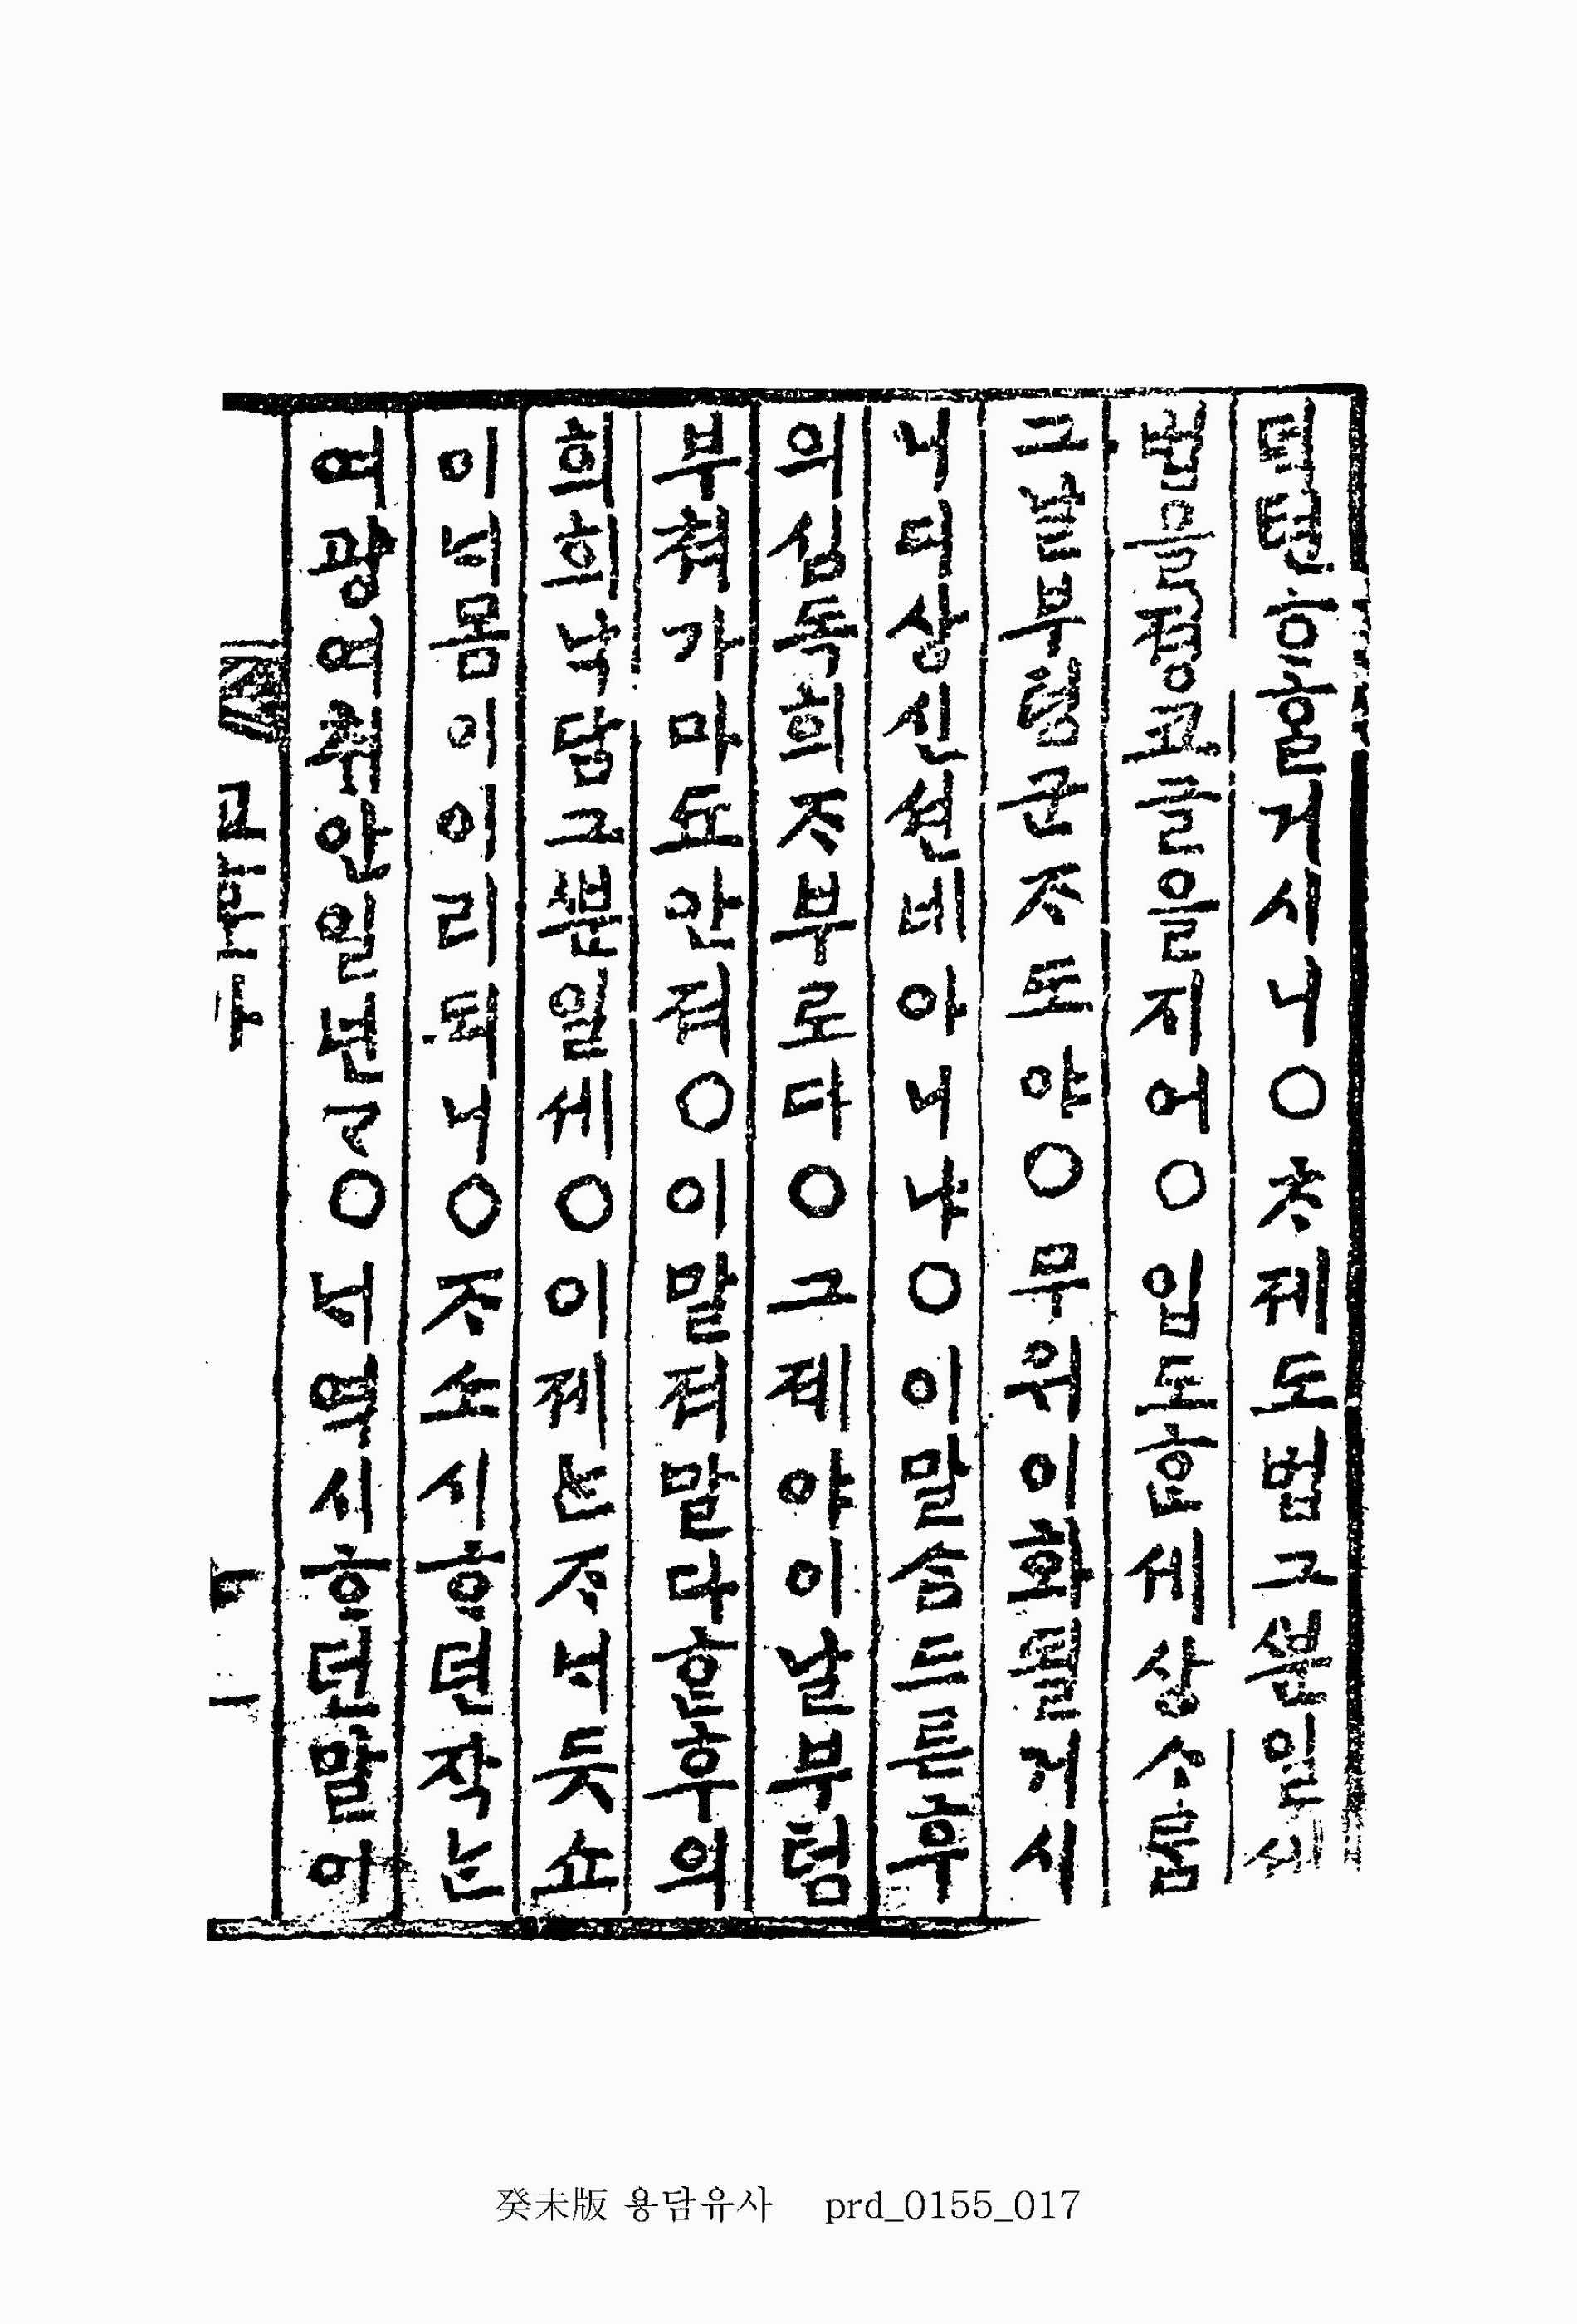 덕턴ᄒᆞ올거시니○ᄎᆞ제도법그ᄲᅮᆫ일세
법을졍코글을지어○입도ᄒᆞᆫ세상ᄉᆞᄅᆞᆷ
그날부텀군ᄌᆞ도야○무위이화될거시
니디상신션네아니냐○이말ᄉᆞᆷ드른후
의심독희ᄌᆞ부로다○그졔야이날부텀
부쳐가마됴안져○이말져말다ᄒᆞᆫ후의
희희낙담그ᄲᅮᆫ일세○이졔ᄂᆞᆫᄌᆞᄂᆡ듯쇼
이ᄂᆡ몸이이리되니○ᄌᆞ소시ᄒᆞ던작ᄂᆞᆫ
여광여취안일년가○ᄂᆡ역시ᄒᆞ던말이
癸未版 용담유사 prd_0155_017